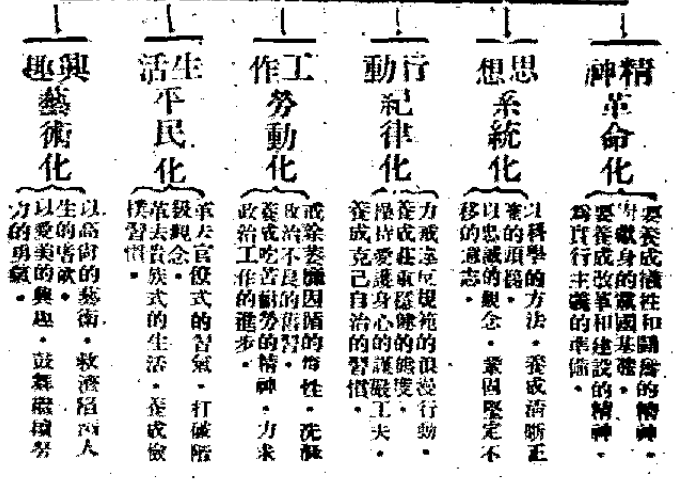 精神
革命化
要養成犧牲和奮鬥的精神。
獻身的黨國基礎。
要養成改革和建設的精神。
為實行主義的準備。
思想
系統化
以科學的方法。養成清晰正
確的頭腦。
以忠誠的觀念。鞏固堅定不
移的意志。
行動
紀律化
力戒違反規範的浪漫行動。
養成莊重穩健的態度。
操持愛護身心的謹嚴工夫。
養成克己自治的習慣。
工作
勞動化
戒除委靡因循的惰性。洗滌
政治不良的舊習。
養成吃苦耐勞的精神。力求
政治工作的進步。
生活
平民化
革去官僚式的習氣。打破階
級觀念。
革去貴族式的生活。養成儉
樸習慣。
興趣
藝術化
以高尚的藝術。救濟人
生的嗜欲。
以愛美的興趣。鼓舞繼續努
力的勇氣。